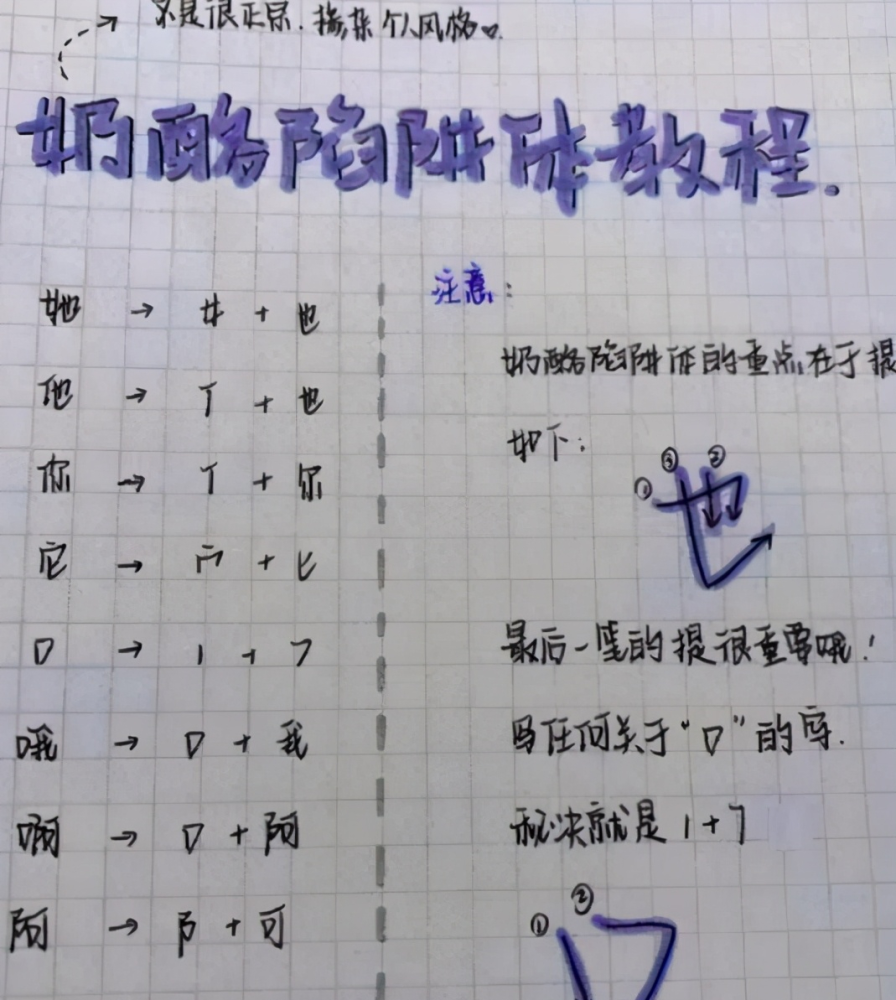 不是很正宗.掺杂个人风格
奶酪陷阱体教程.
她 → 女 + 也
他 → 亻 + 也
你 → 亻 + 尔
它 → 宀 + 匕
口 → 丨 + ㇕
哦 → 口 + 我
啊 → 口 + 阿
阿 → 阝 + 可
注意:
奶酪陷阱体的重点在于提
如下:
① ③ ②
也
最后一笔的提很重要哦!
写任何关于“口”的字.
秘诀就是丨+㇕
① ②